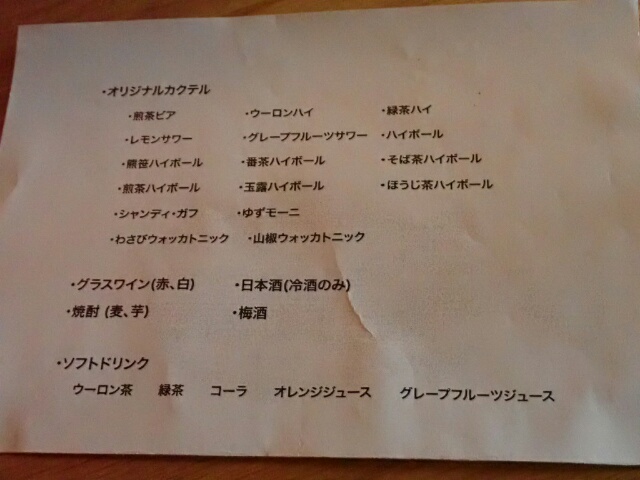 ・オリジナルカクテル
・煎茶ビア ・ウーロンハイ ・緑茶ハイ
・レモンサワー ・グレープフルーツサワー ・ハイボール
・熊笹ハイボール ・番茶ハイボール ・そば茶ハイボール
・煎茶ハイボール ・玉露ハイボール ・ほうじ茶ハイボール
・シャンディ・ガフ ・ゆずモーニ
・わさびウォッカトニック ・山椒ウォッカトニック
・グラスワイン(赤、白) ・日本酒(冷酒のみ)
・焼酎 (麦、芋) ・梅酒
・ソフトドリンク
ウーロン茶 緑茶 コーラ オレンジジュース グレープフルーツジュース